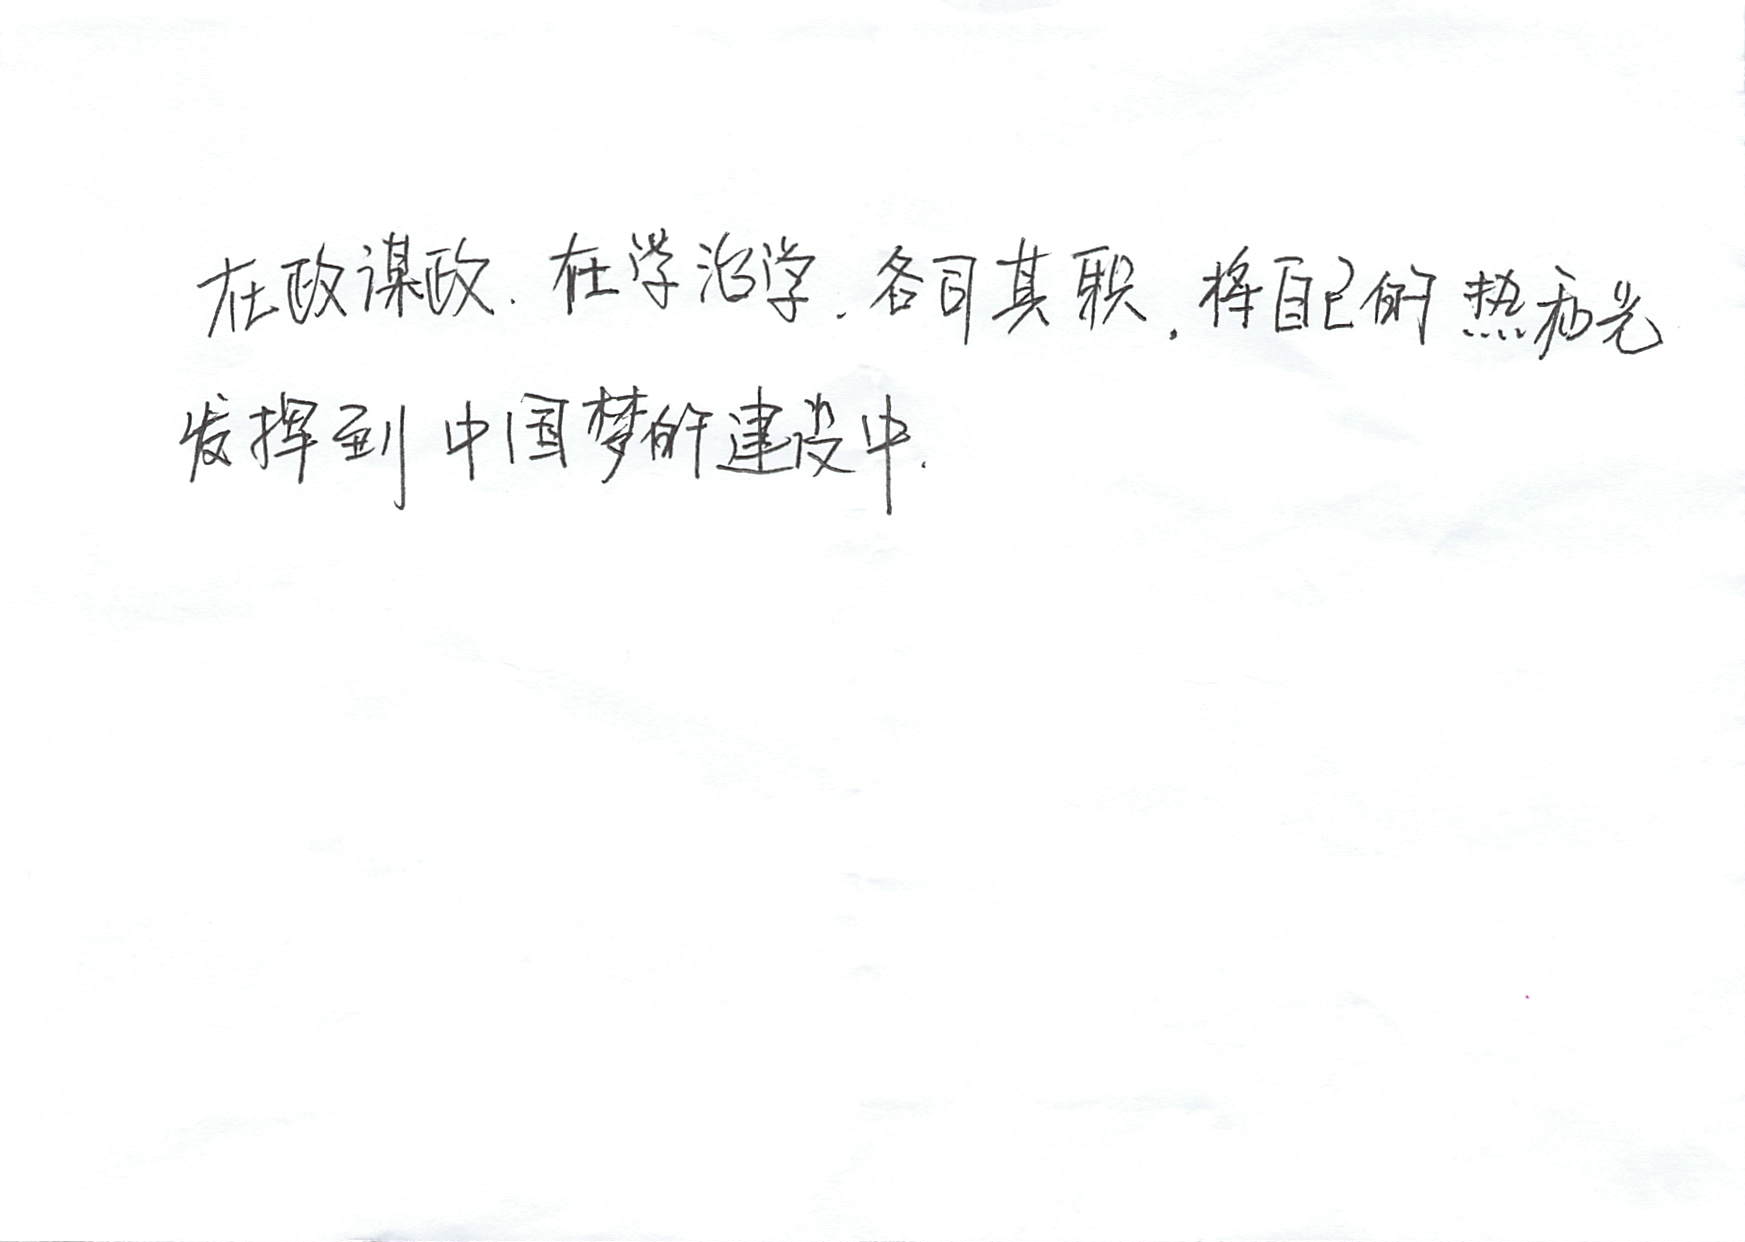 在政谋政.在学治学.各司其职.将自己的热和光
发挥到中国梦的建设中.